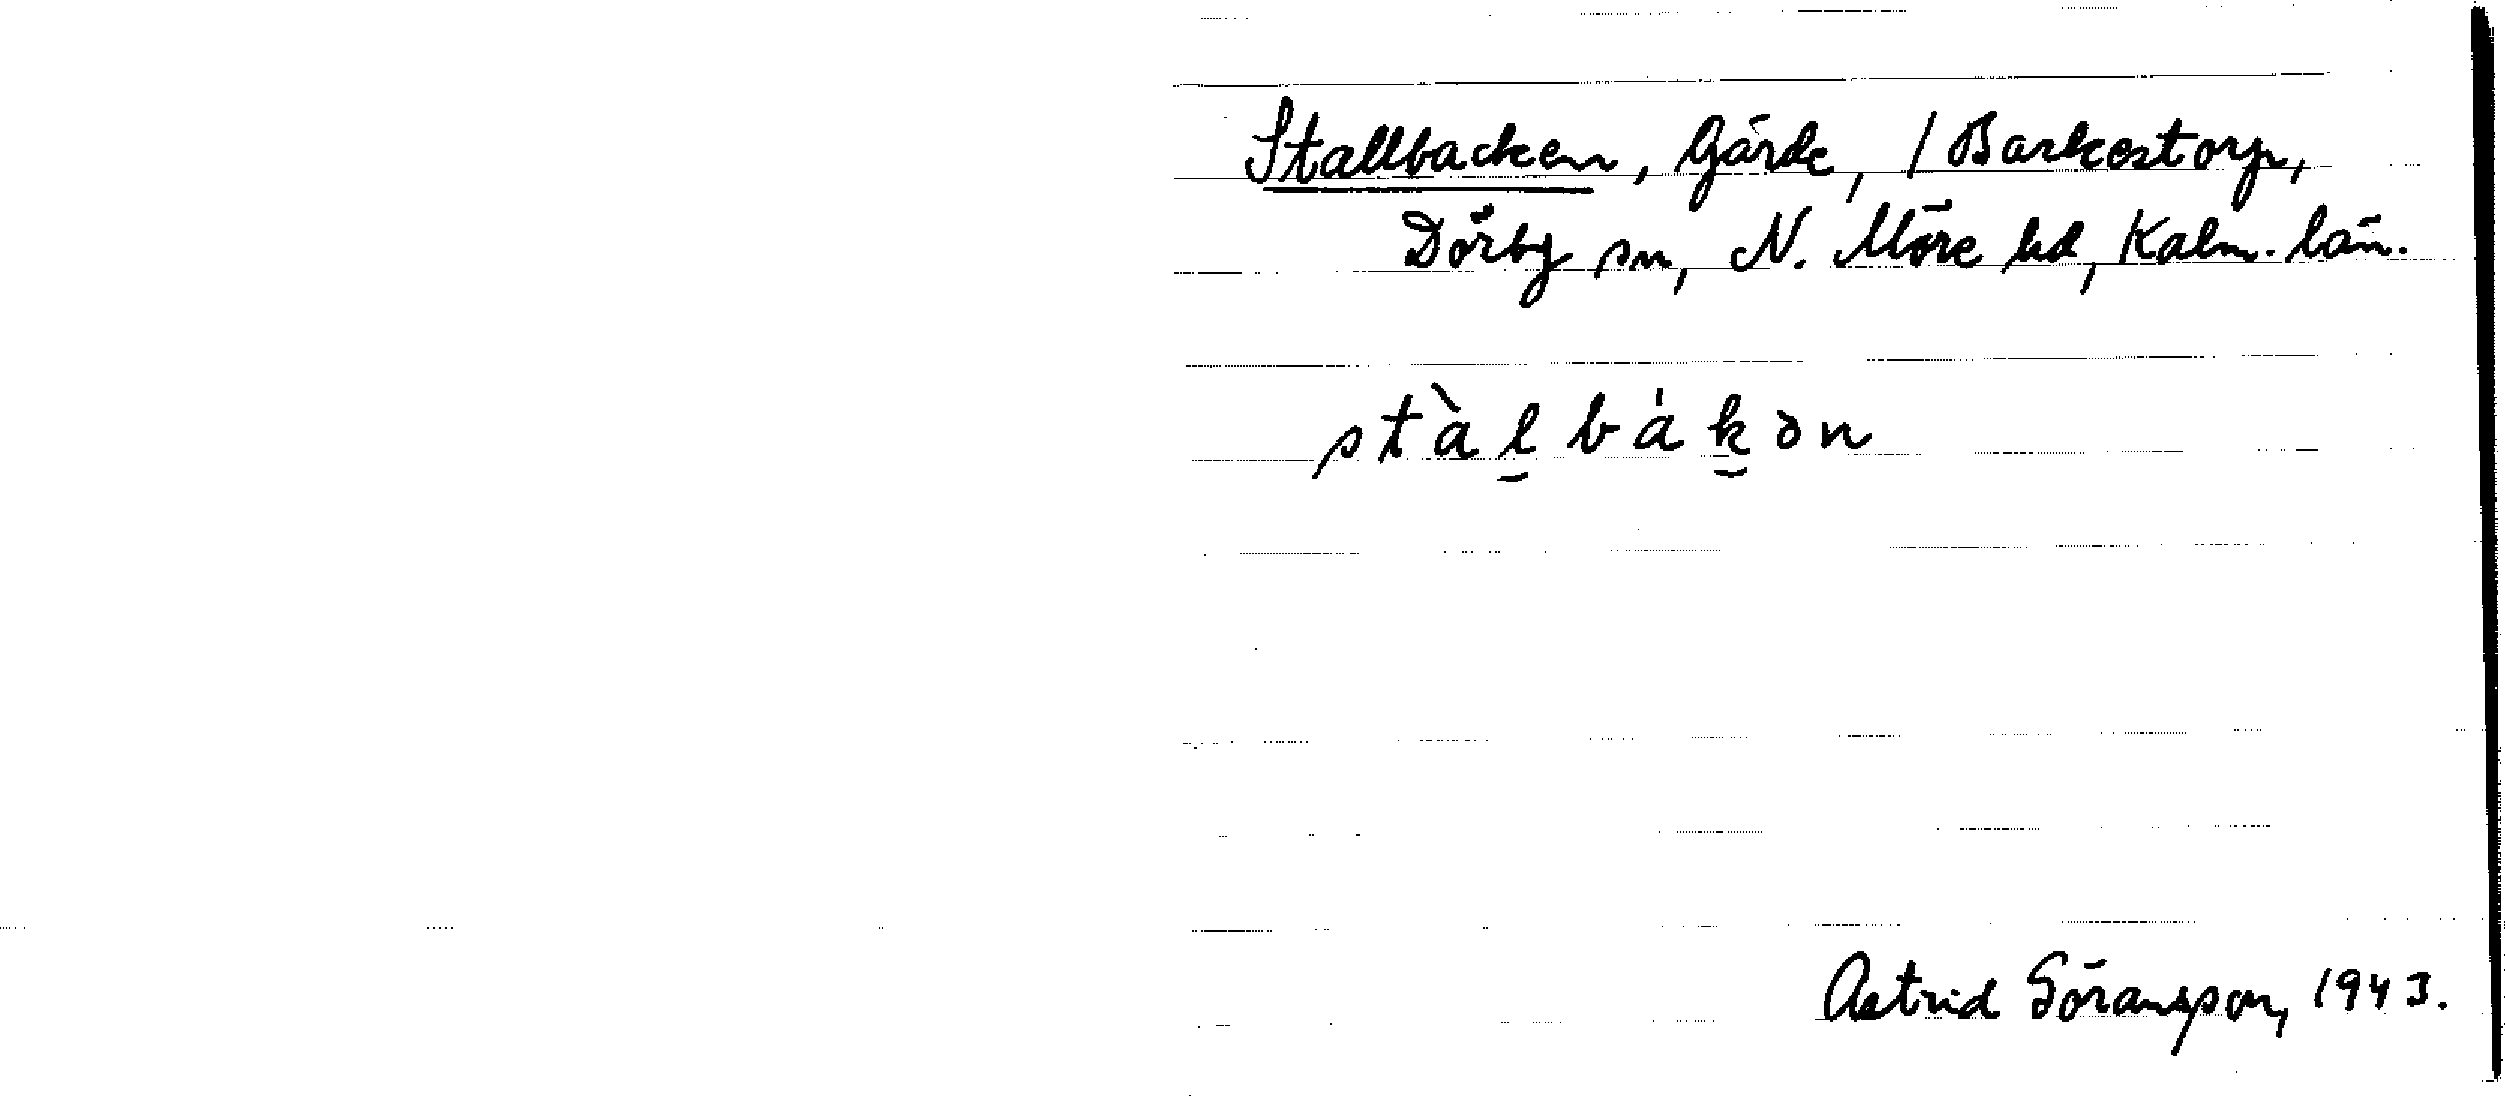 Stallbacken, Gärde, / Barkestorp,
Dörby sn, N. Möre hd, Kalm. län.
stàl̠bák̠ən
Astrid Göransson, 1943.